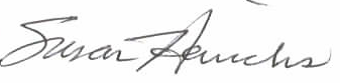 Susan Hinrichs